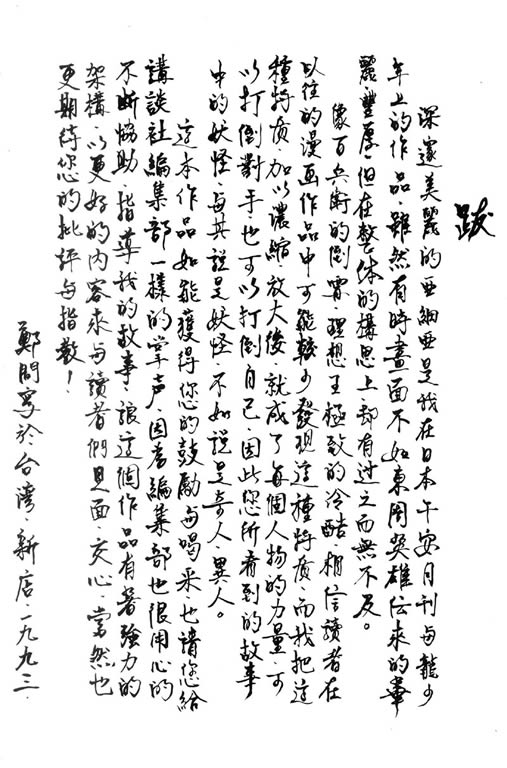 跋
深邃美麗的亜細亜是我在日本午安月刊每龍少
年上的作品、雖然有時畫面不如東周英雄伝来的華
麗豐厚、但在整体的構思上、却有过之而無不及。
像百兵衛的倒霄、理想王極致的冷酷、相信讀者在
以往的漫画作品中可能較少發現這種特质、而我把這
種特质加以濃縮、放大後、就成了每個人物的力量、可
以打倒對手也可以打倒自己、因此您所看到的故事
中的妖怪、與其說是妖怪、不如說是奇人、異人。
這本作品如能獲得您的鼓勵與喝采也請您給
講談社編集部一樣的掌声、因為編集部也很用心的
不断協助、指導我的故事、讓這個作品有著強力的
架構、以更好的内容来與讀者們見面、交心、當然也
更期待您的批評與指教！
鄭問寫於台灣、新店、一九九三、